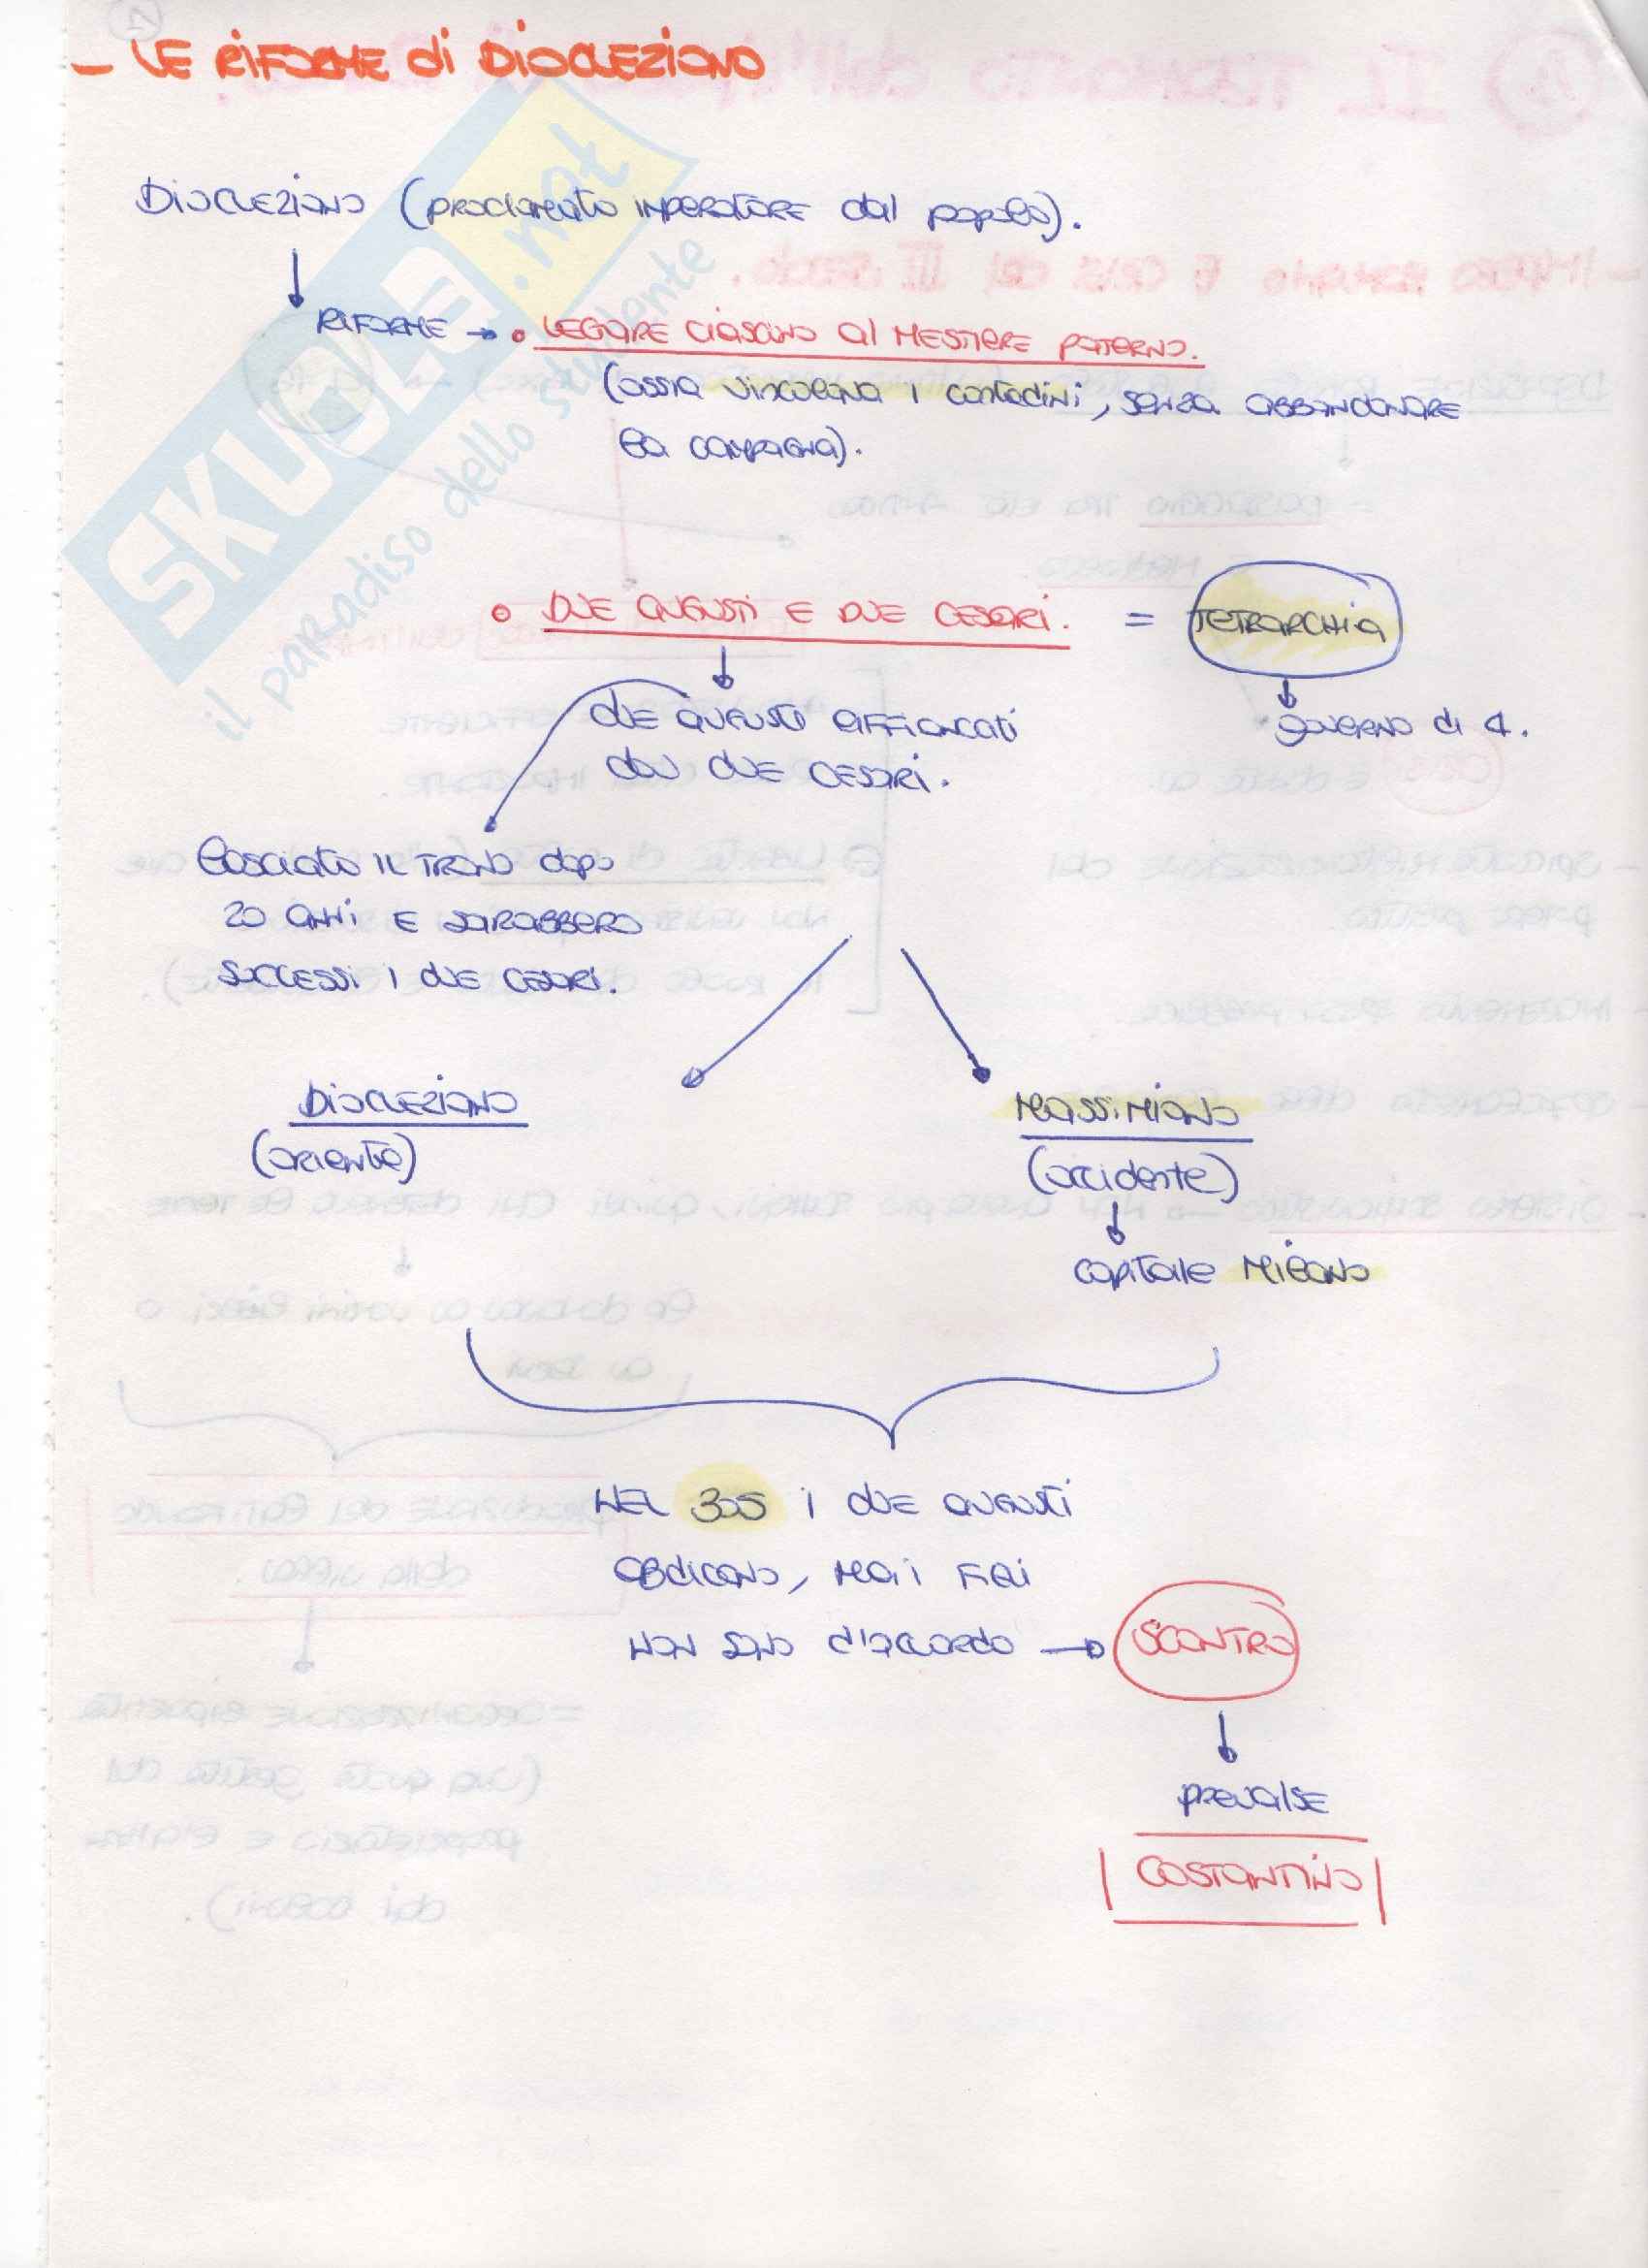 - LE RIFORME di DIOCLEZIANO
DIOCLEZIANO (proclamato IMPERATORE dal popolo).
RIFORME → • LEGARE CIASCUNO al MESTIERE PATERNO.
(ossia vincolava i contadini, senza abbandonare
la campagna).
• DUE AUGUSTI E DUE CESARI. = TETRARCHIA
due augusti affiancati
dai due cesari.
governo di 4.
lasciato il trono dopo
20 anni e sarabbero
successi i due cesari.
DIOCLEZIANO
(oriente)
MASSIMIANO
(occidente)
capitale Milano
NEL 305 i due augusti
abdicano, ma i figli
non sono d'accordo → SCONTRO
prevalse
COSTANTINO
SKUOLA.net
il paradiso dello studente